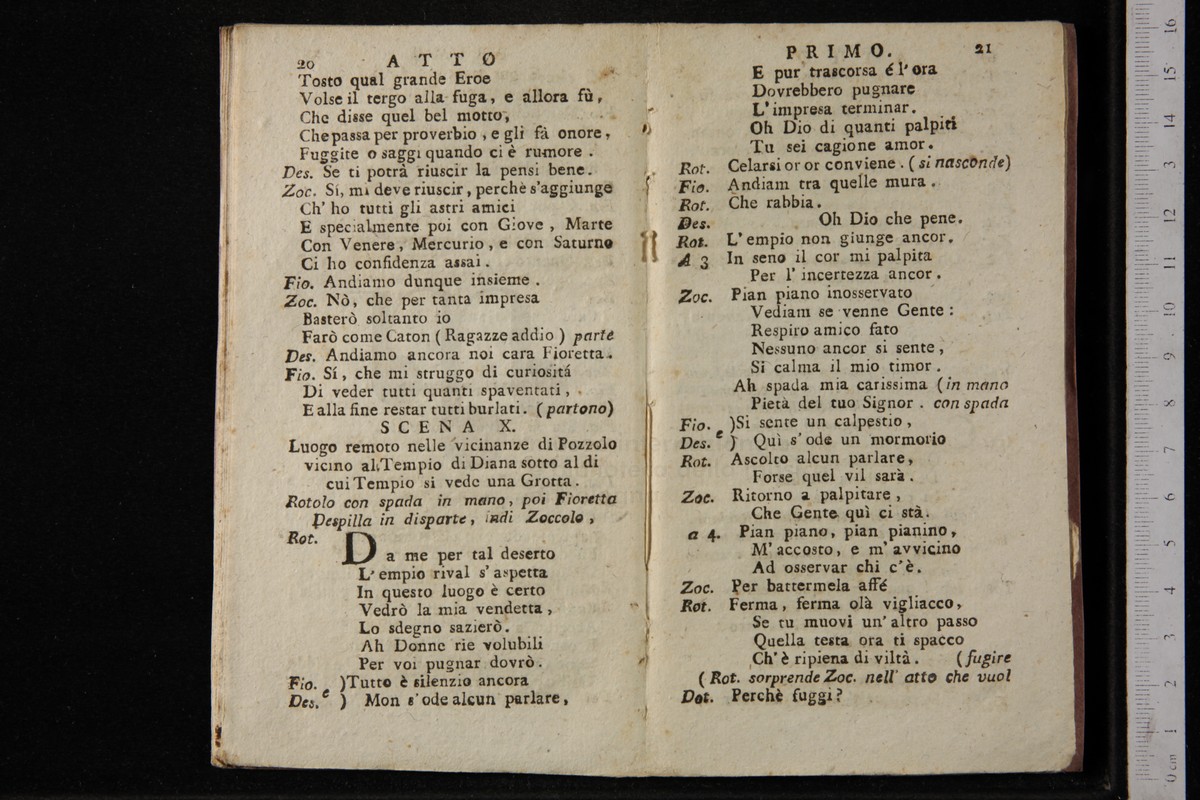 20 ATTO
Tosto qual grande Eroe
Volse il tergo alla fuga, e allora fù,
Che disse quel bel motto,
Che passa per proverbio, e gli fà onore,
Fuggite o saggi quando ci è rumore.
Des. Se ti potrà riuscir la pensi bene.
Zoc. Sí, mi deve riuscir, perchè s'aggiunge
Ch' ho tutti gli astri amici
E specialmente poi con Giove, Marte
Con Venere, Mercurio, e con Saturno
Ci ho confidenza assai.
Fio. Andiamo dunque insieme.
Zoc. Nò, che per tanta impresa
Basterò soltanto io
Farò come Caton (Ragazze addio) parte
Des. Andiamo ancora noi cara Fioretta.
Fio. Sí, che mi struggo di curiositá
Di veder tutti quanti spaventati,
E alla fine restar tutti burlati. (partono)
SCENA X.
Luogo remoto nelle vicinanze di Pozzolo
vicino al Tempio di Diana sotto al di
cui Tempio si vede una Grotta.
Rotolo con spada in mano, poi Fioretta
Despilla in disparte, indi Zoccolo,
Rot. Da me per tal deserto
L' empio rival s' aspetta
In questo luogo è certo
Vedrò la mia vendetta,
Lo sdegno sazierò.
Ah Donne rie volubili
Per voi pugnar dovrò.
Fio. e )Tutto è silenzio ancora
Des. ) Mon s'ode alcun parlare,
PRIMO. 21
E pur trascorsa é l' ora
Dovrebbero pugnare
L' impresa terminar.
Oh Dio di quanti palpiti
Tu sei cagione amor.
Rot. Celarsi or or conviene. (si nasconde)
Fio. Andiam tra quelle mura.
Rot. Che rabbia.
Des. Oh Dio che pene.
Rot. L' empio non giunge ancor.
A 3 In seno il cor mi palpita
Per l' incertezza ancor.
Zoc. Pian piano inosservato
Vediam se venne Gente:
Respiro amico fato
Nessuno ancor si sente,
Si calma il mio timor.
Ah spada mia carissima (in mano
Pietà del tuo Signor. con spada
Fio. e )Si sente un calpestio,
Des. ) Quì s' ode un mormorio
Rot. Ascolto alcun parlare,
Forse quel vil sarà.
Zoc. Ritorno a palpitare,
Che Gente quì ci stà.
a 4. Pian piano, pian pianino,
M' accosto, e m' avvicino
Ad osservar chi c'è.
Zoc. Per battermela affé
Rot. Ferma, ferma olà vigliacco,
Se tu muovi un' altro passo
Quella testa ora ti spacco
Ch' è ripiena di viltà. (fugire
(Rot. sorprende Zoc. nell' atto che vuol
Dot. Perchè fuggi?
0 cm 1 2 3 4 5 6 7 8 9 10 11 12 3 14 15 16